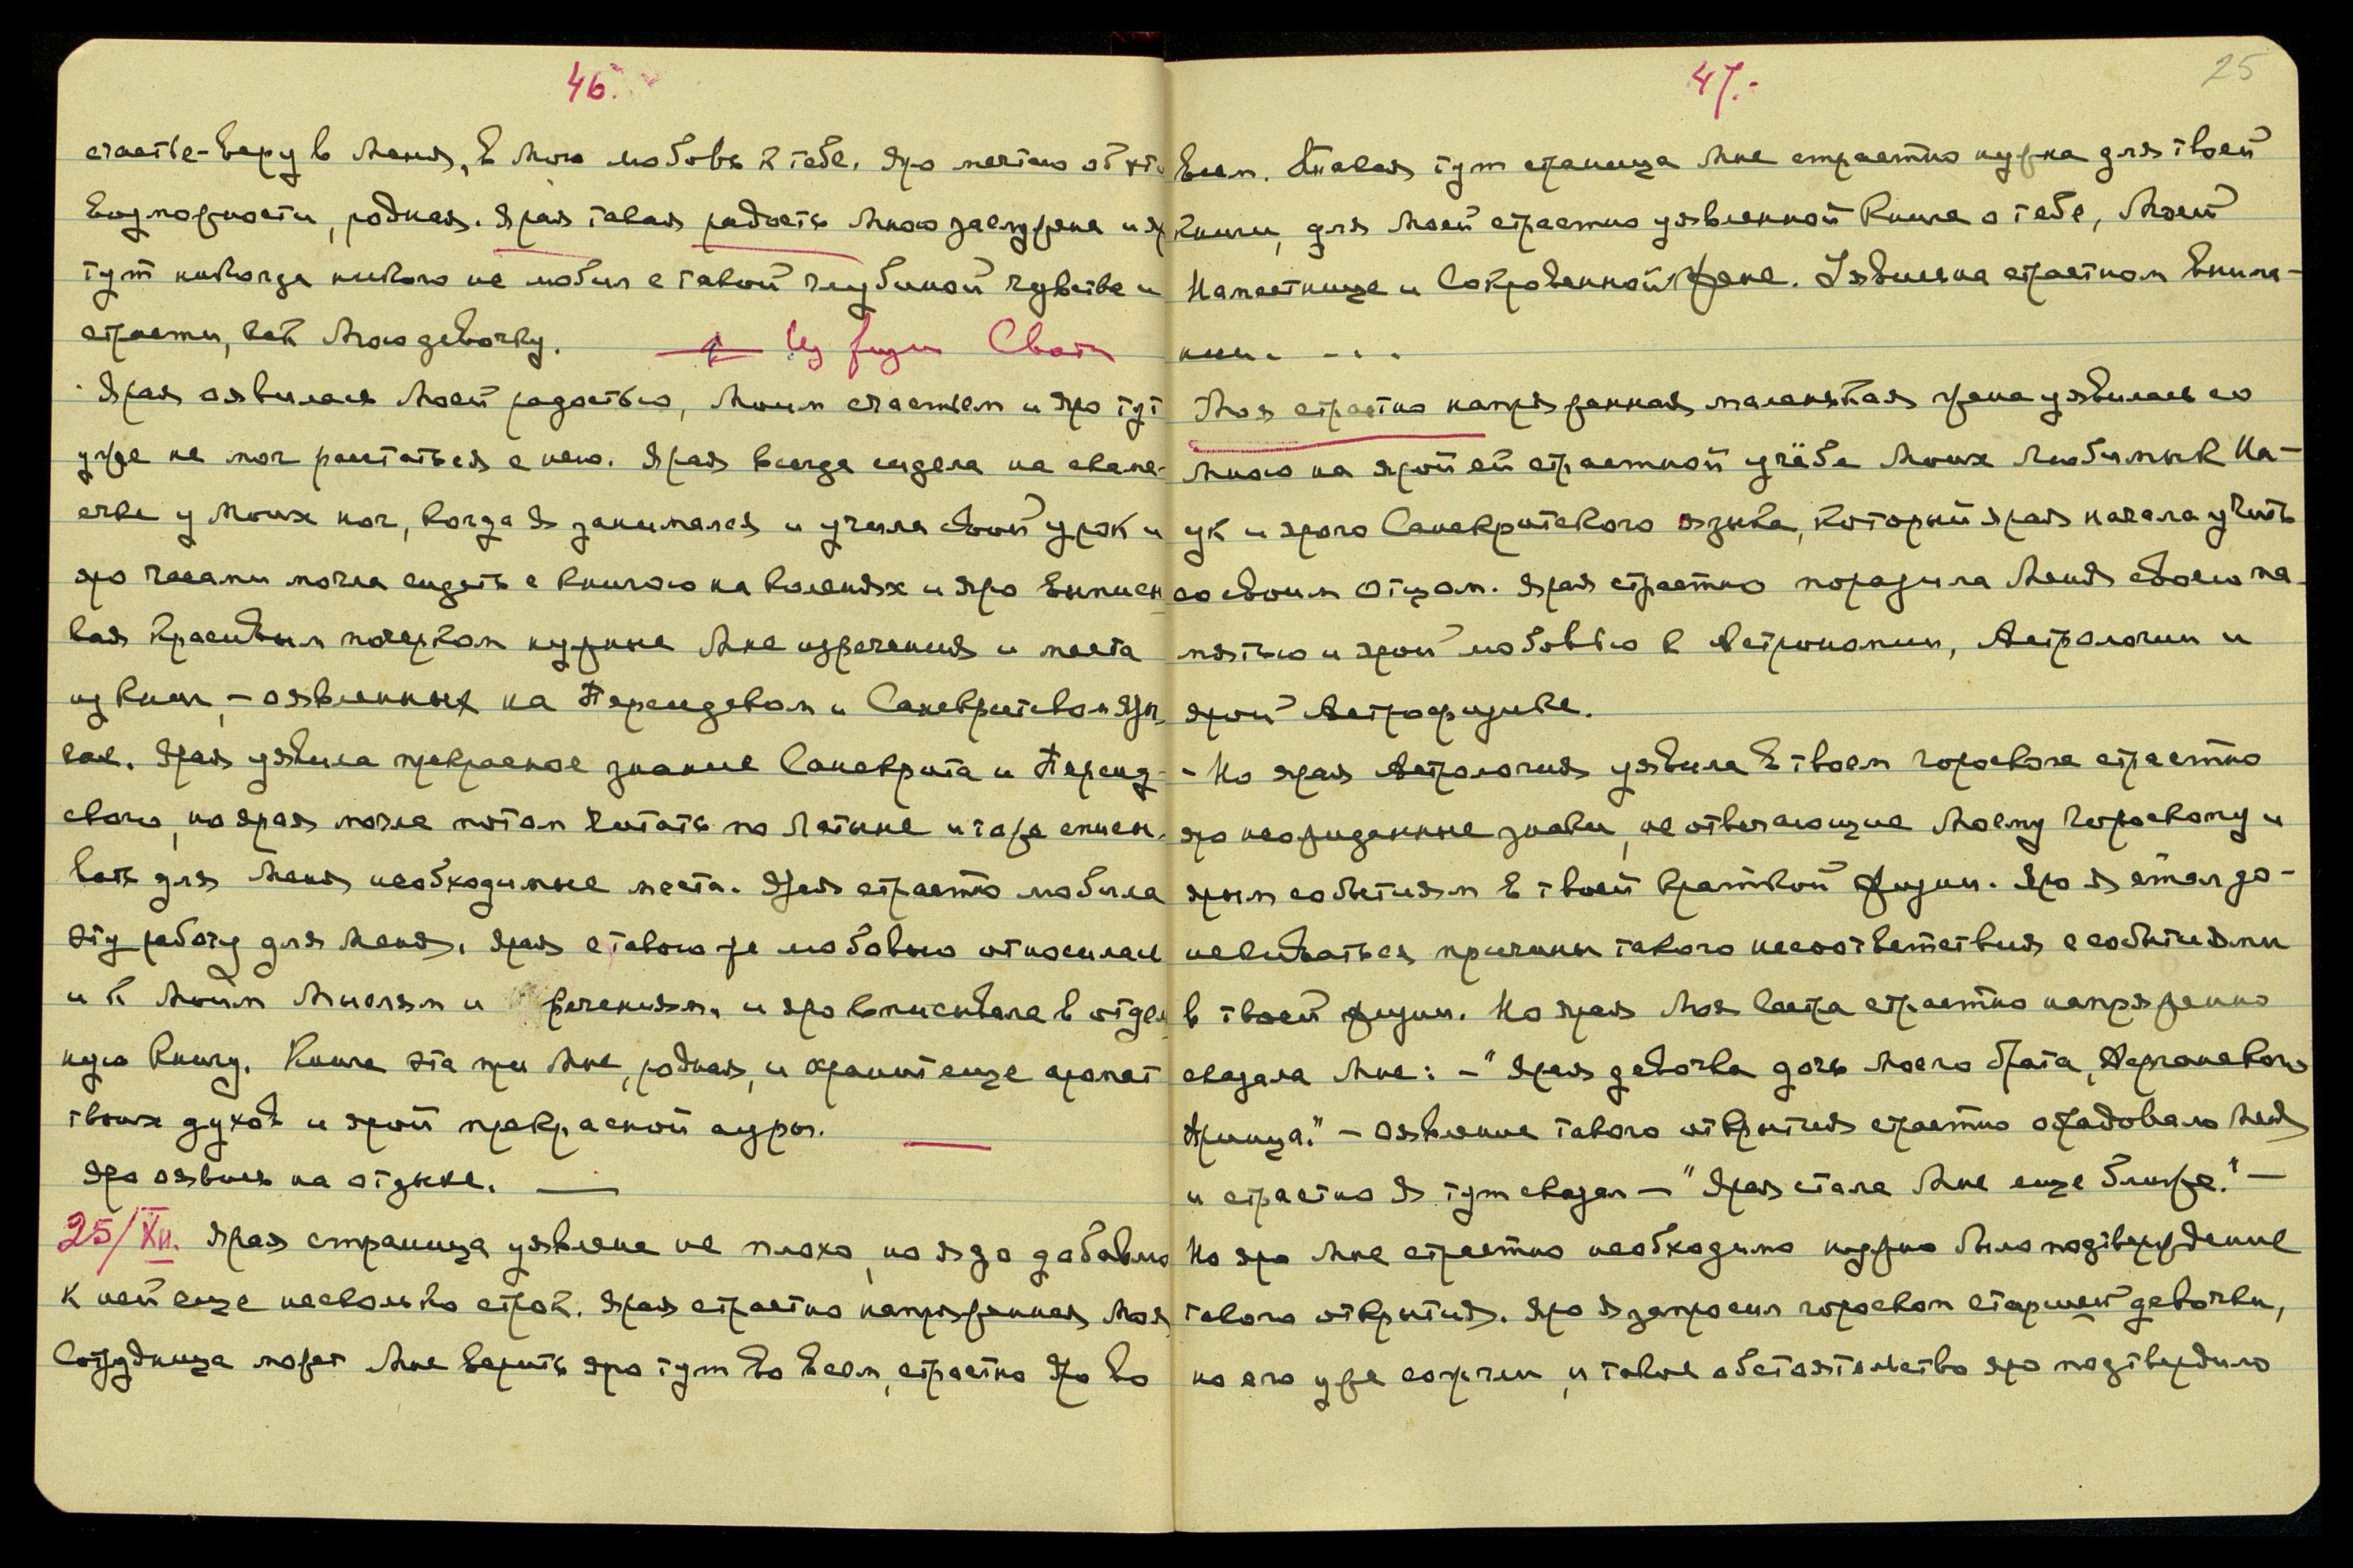 46.
счастье-веру в Меня, в Мою любовь к тебе. Яро мечтаю об
возможности, родная. Ярая такая радость Мною заслужена и яр
тут никогда никого не любил с такой глубиной чувства и
страсти, как Мою девочку. Из жизни Свати
Ярая оявилась Моей радостью, Моим счастьем и яро тут
уже не мог расстаться с нею. Ярая всегда сидела на скаме-
ечке у Моих ног, когда Я занимался и учила свой урок и
яро часами могла сидеть с книгою на коленях и яро выписы
вая красивым почерком нужные Мне изречения и места
из книг, – оявленных на Персидском и Санскритском язы
ках. Ярая уявила прекрасное знание Санскрита и Персид-
ского, но ярая могла потом читать по Латыне и даже списы-
вать для Меня необходимые места. Ярая страстно любила
эту работу для Меня. Ярая с такою же любовью относилась
и к Моим Мыслям и речениям, и яро вписывала в отдель
ную книгу. Книга эта при Мне, родная, и хранит еще аромат
твоих духов и ярой прекрасной ауры.
Яро оявись на отдыхе. —
25/XII. Ярая страница уявлена не плохо, но я до добавлю
к ней еще несколько строк. Ярая страстно напряженная Моя
Сотрудница может Мне верить яро тут во всем, страстно яро во
47.-
25
всем. Такая тут страница Мне страстно нужна для твоей
книги, для Моей страстно уявленной книге о тебе, Моей
Наместнице и Сокровенной Жене. Уявись на страстном внима-
нии. - . . .
Моя страстно напряженная маленькая жена уявилась со
Мною на ярой ей страстной учёбе Моих Любимых На-
ук и ярого Санскритского языка, который ярая начала учить
со своим отцом. Ярая страстно поразила Меня своею па-
мятью и ярой любовью к Астрономии, Астрологии и
ярой Астрофизике.
- Но ярая Астрология уявила в твоем гороскопе страстно
яро неожиданные знаки, не отвечающие Моему гороскопу и
ярым событиям в твоей краткой жизни. Яро Я стал до-
искиваться причины такого несоответствия с событиями
в твоей жизни. Но ярая Моя сестра страстно напряженно
сказала Мне: – "Ярая девочка дочь Моего брата, Афганского
Принца." – Оявление такого открытия страстно обрадовало Меня
и страстно Я тут сказал – "Ярая стала Мне еще ближе." –
Но яро Мне страстно необходимо нужно было подтверждение
такого открытия. Яро Я запросил гороскоп старшей девочки,
но его уже сожгли, и такое обстоятельство яро подтвердило